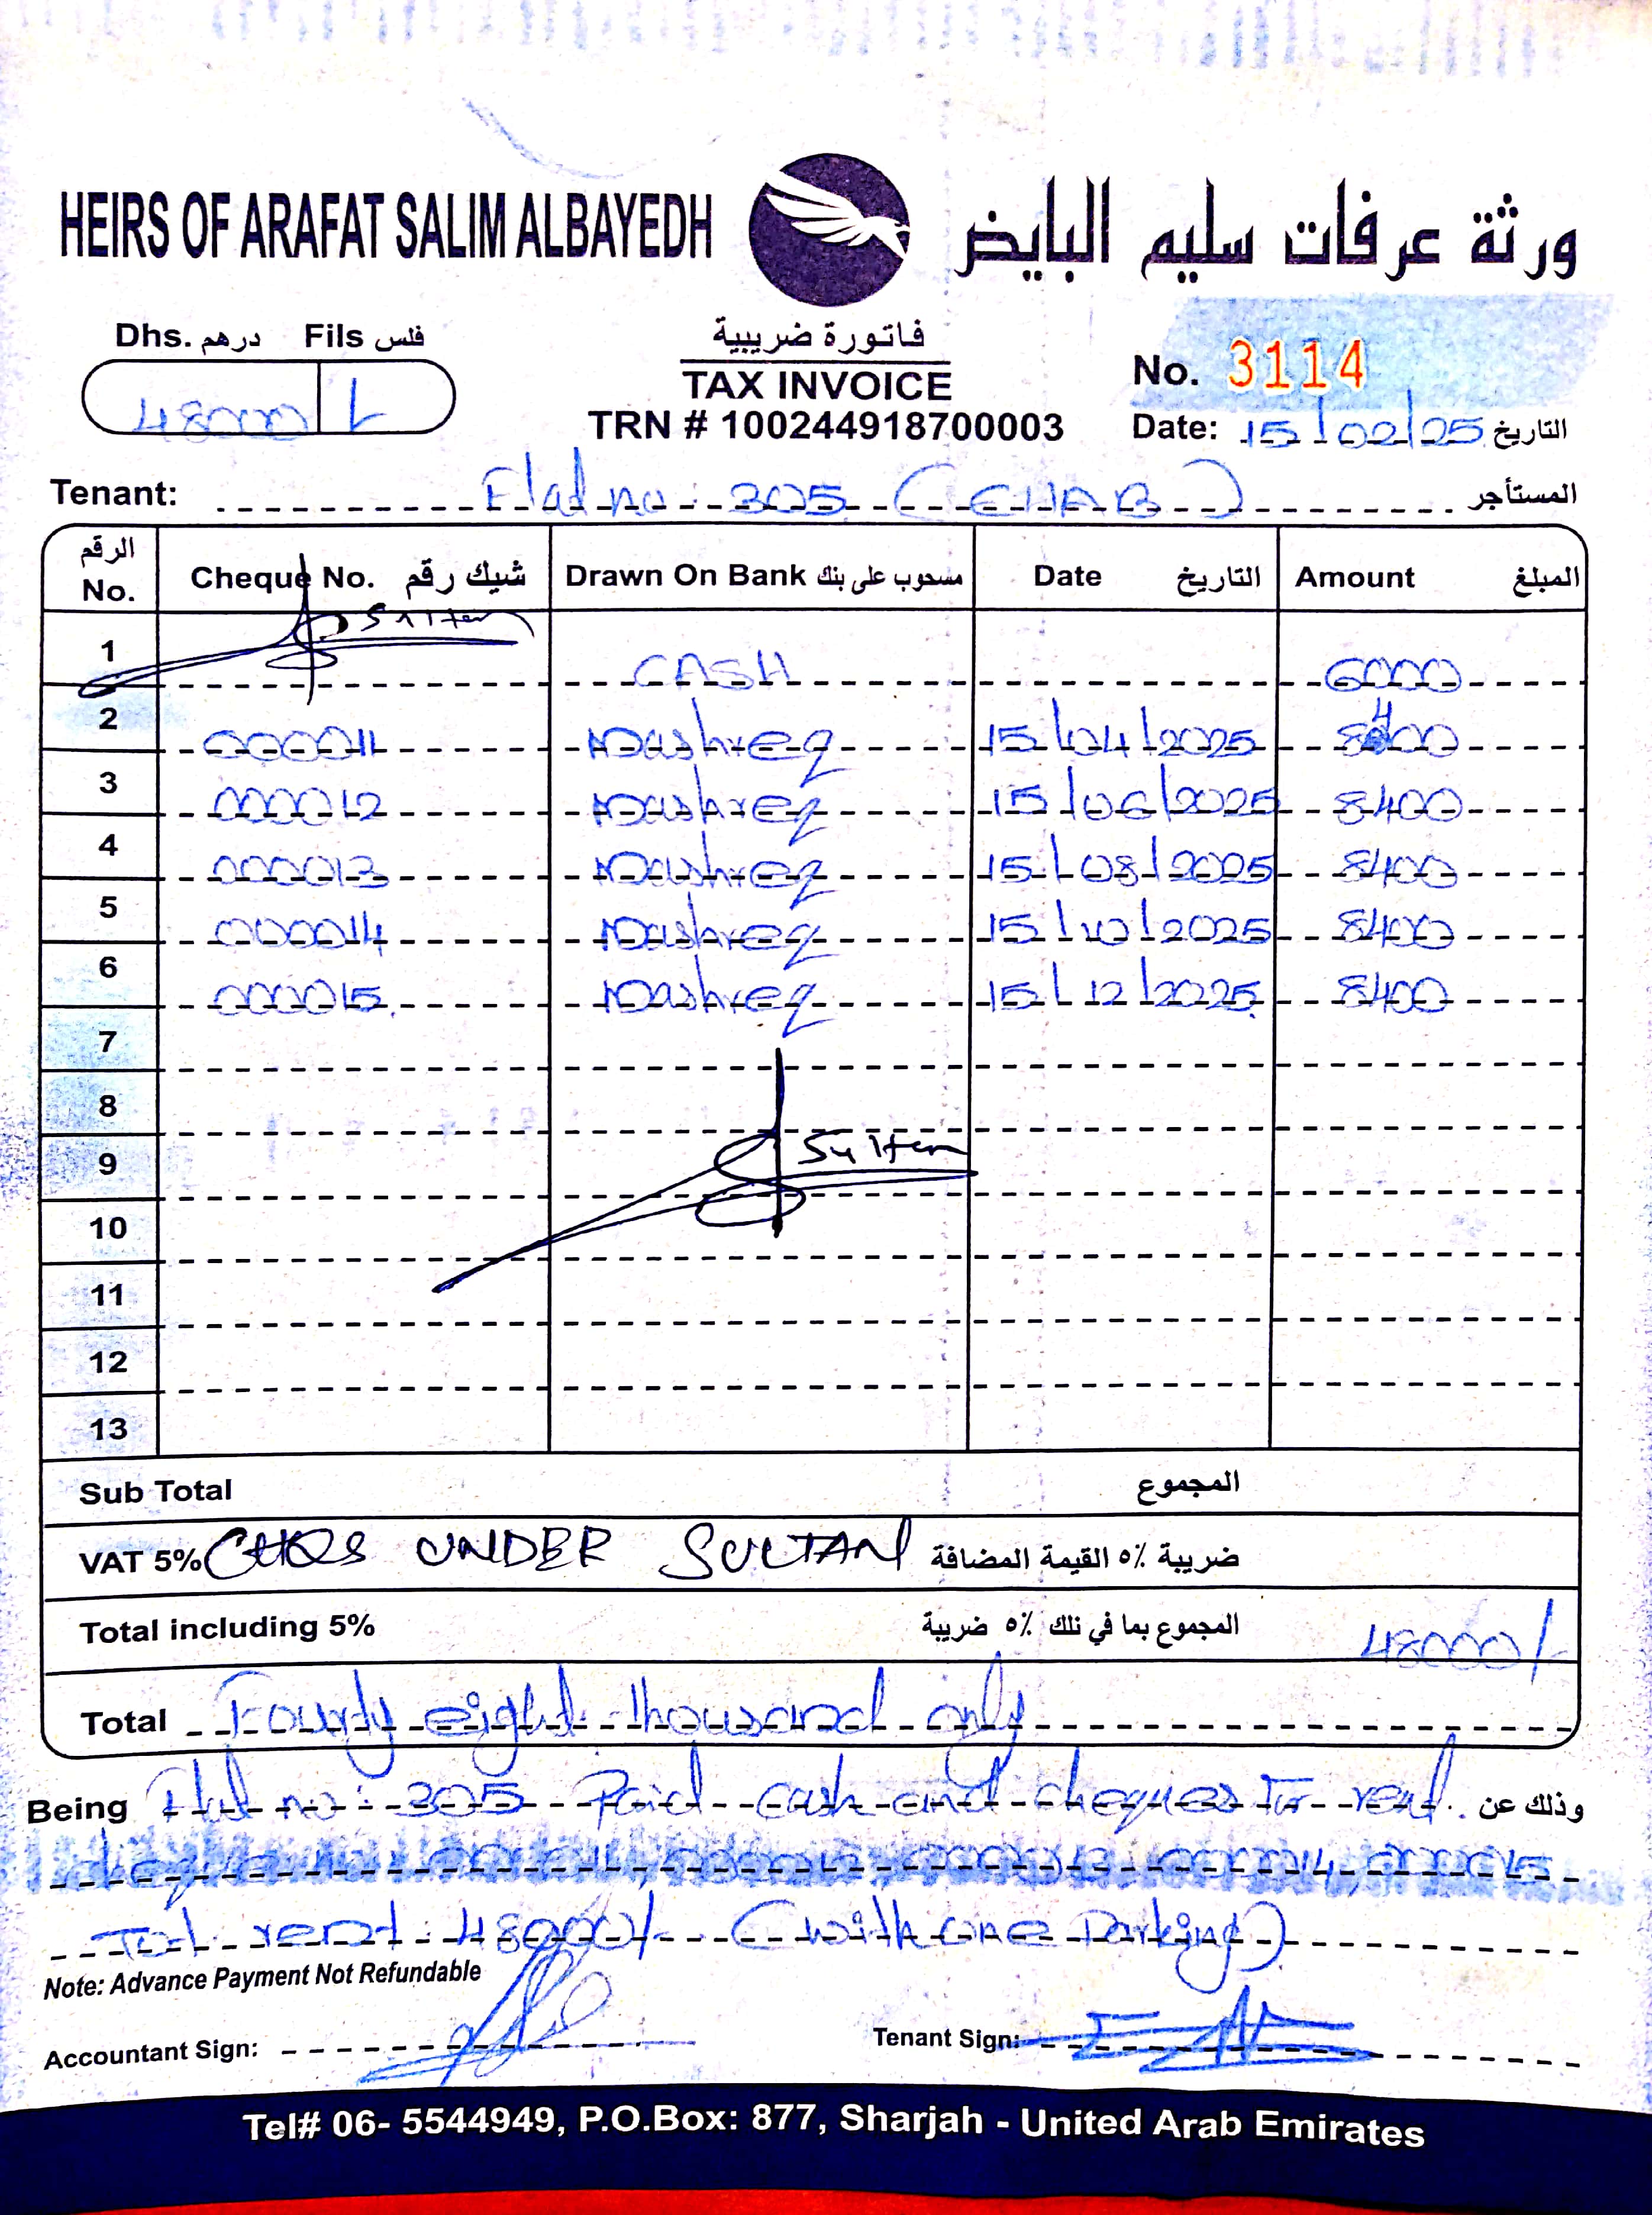 HEIRS OF ARAFAT SALIM ALBAYEDH ورثة عرفات سليم البايض
Dhs. درهم Fils فلس
48000 /
فاتورة ضريبية
TAX INVOICE
TRN # 100244918700003
No. 3114
Date: 15/02/25 التاريخ
Tenant: Flat no: 305 (EHAB) المستأجر
الرقم No. Cheque No. شيك رقم Drawn On Bank مسحوب على بنك Date التاريخ Amount المبلغ
Sultan
1 CASH 6000
2 000011 Mashreq 15/04/2025 8400
3 000012 Mashreq 15/06/2025 8400
4 000013 Mashreq 15/08/2025 8400
5 000014 Mashreq 15/10/2025 8400
6 000015 Mashreq 15/12/2025 8400
7
8
9 Sultan
10
11
12
13
Sub Total المجموع
VAT 5% CHQS UNDER SULTAN ضريبة ٥٪ القيمة المضافة
Total including 5% المجموع بما في تلك ٥٪ ضريبة 48000/-
Total Fourty eight thousand only
Being Flat no: 305 Paid cash and cheques For rent. وذلك عن
000013 000014, 000015
Tot. rent: 48000/- (with one Parking)
Note: Advance Payment Not Refundable
Accountant Sign: Tenant Sign:
Tel# 06- 5544949, P.O.Box: 877, Sharjah - United Arab Emirates